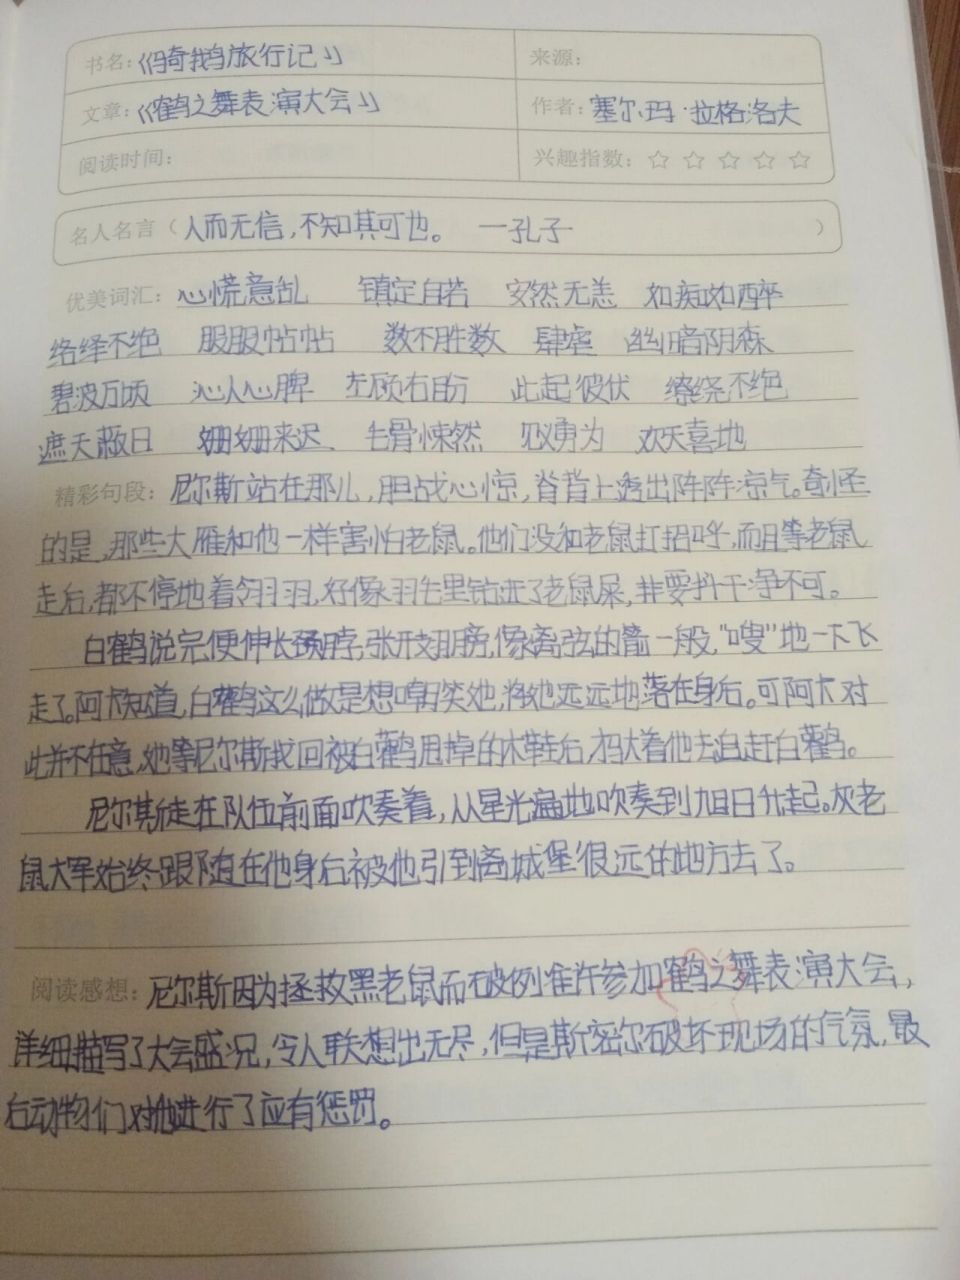 书名：《骑鹅旅行记》 来源：
文章：《鹤之舞表演大会》 作者：塞尔玛·拉格洛夫
阅读时间： 兴趣指数：☆ ☆ ☆ ☆ ☆
名人名言（人而无信，不知其可也。 —孔子 ）
优美词汇：心慌意乱 镇定自若 安然无恙 如痴如醉
络绎不绝 服服帖帖 数不胜数 肆虐 幽暗阴森
碧波万顷 沁人心脾 左顾右盼 此起彼伏 缭绕不绝
遮天蔽日 姗姗来迟 毛骨悚然 见义勇为 欢天喜地
精彩句段：尼尔斯站在那儿，胆战心惊，脊背上透出阵阵凉气。奇怪
的是，那些大雁和他一样害怕老鼠。他们没和老鼠打招呼，而且等老鼠
走后，都不停地着翎羽，好像羽毛里钻进了老鼠屎，非要抖干净不可。
白鹤说完便伸长颈脖，张开翅膀，像离弦的箭一般，“嗖”地一下飞
走了。阿卡知道，白鹳这么做是想嘲笑她，将她远远地落在身后。可阿卡对
此并不在意，她等尼尔斯找回被白鹳甩掉的木鞋后，才驮着他去追赶白鹳。
尼尔斯走在队伍前面吹奏着，从星光遍地吹奏到旭日升起。灰老
鼠大军始终跟随在他身后被他引到离城堡很远的地方去了。
阅读感想：尼尔斯因为拯救黑老鼠而破例准许参加鹤之舞表演大会，
详细描写了大会盛况，令人联想出无尽，但是斯密尔破坏现场的气氛，最
后动物们对他进行了应有惩罚。